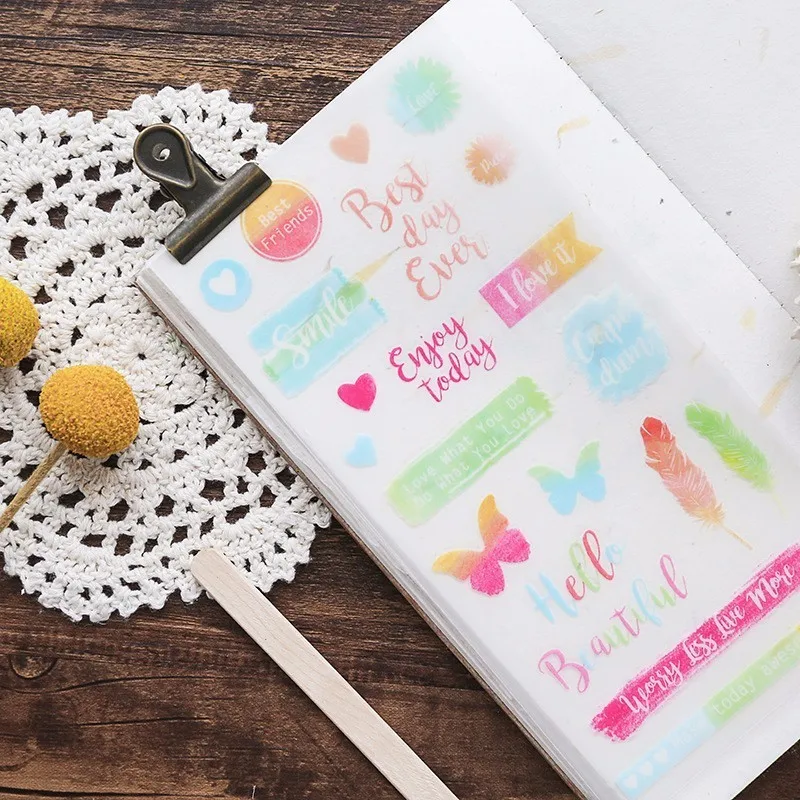 Love
Best
day
Ever
Best
Friends
I love it
Smile
Enjoy
today
Carpe
diem
Love What You Do
Do What You Love
Hello
Beautiful
Worry Less Live More
today